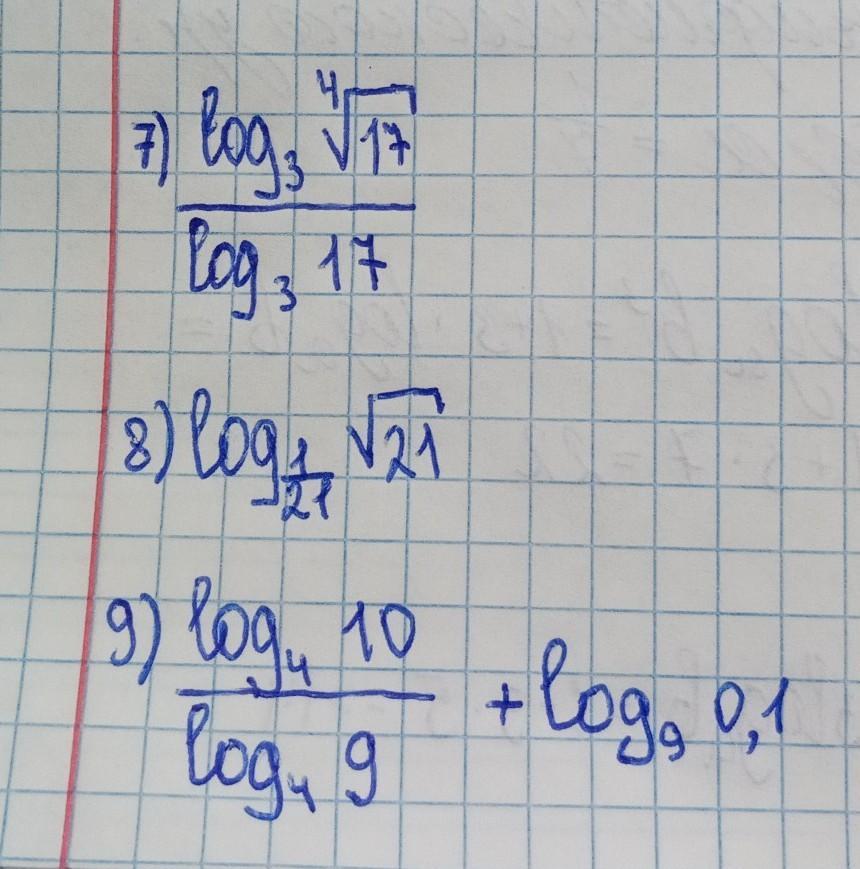 7) log₃ ⁴√17
log₃ 17
8) log_{1/21} √21
9) log₄ 10
log₄ 9 + log₉ 0,1